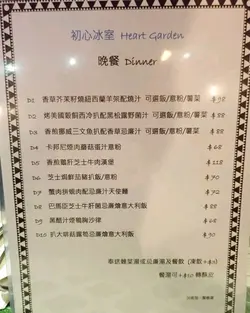 初心冰室 Heart Garden
晚餐 Dinner
D1 香草芥茉籽燒紐西蘭羊架配燒汁 可選飯/意粉/薯菜 $98
D2 烤美國穀飼西冷扒配黑椒露野菌汁 可選飯/意粉/薯菜
D3 香煎挪威三文魚扒配香草忌廉汁 可選飯/意粉/薯菜
D4 卡邦尼煙肉蘑菇蛋汁意粉 $68
D5 香煎雞肝芝士牛肉漢堡
D6 芝士焗鮮茄豬扒飯/意粉
D7 蟹肉拼銀肉配忌廉汁天使麵
D8 巴馬臣芝士牛肝菌忌廉燴意大利飯
D9 黑醋汁煙鴨胸沙律 $68
D10 扒大啡菇露筍忌廉燴意大利飯 $90
奉送雜菜湯或忌廉湯及餐飲 (凍飲+$2)
餐湯可+$10 轉酥皮